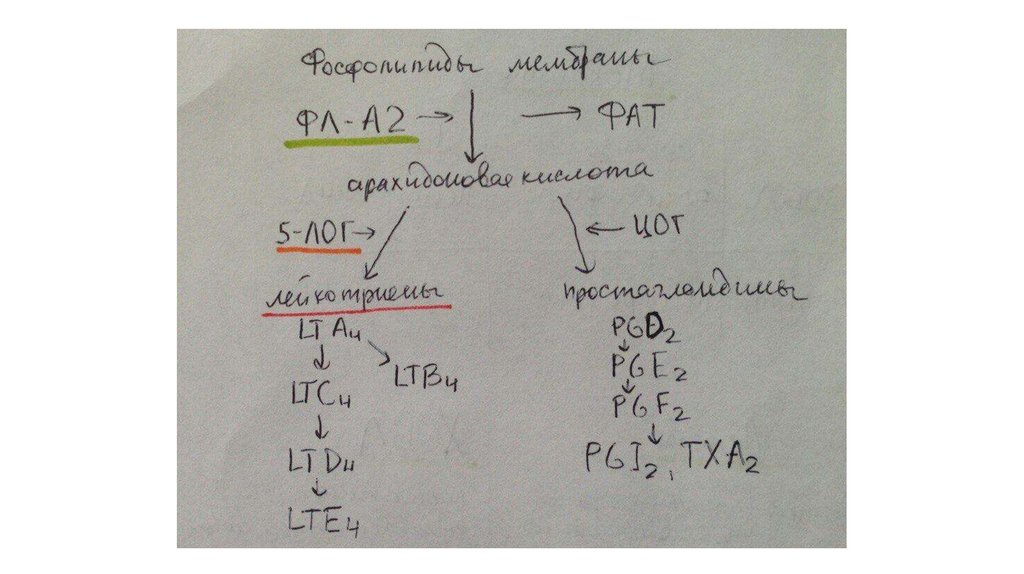 Фосфолипиды мембраны
ФЛ-А2 → → ФАТ
арахидоновая кислота
5-ЛОГ → ← ЦОГ
лейкотриены простагландины
LTA4 PGD2
LTB4 PGE2
LTC4 PGF2
LTD4 PGI2, TXA2
LTE4